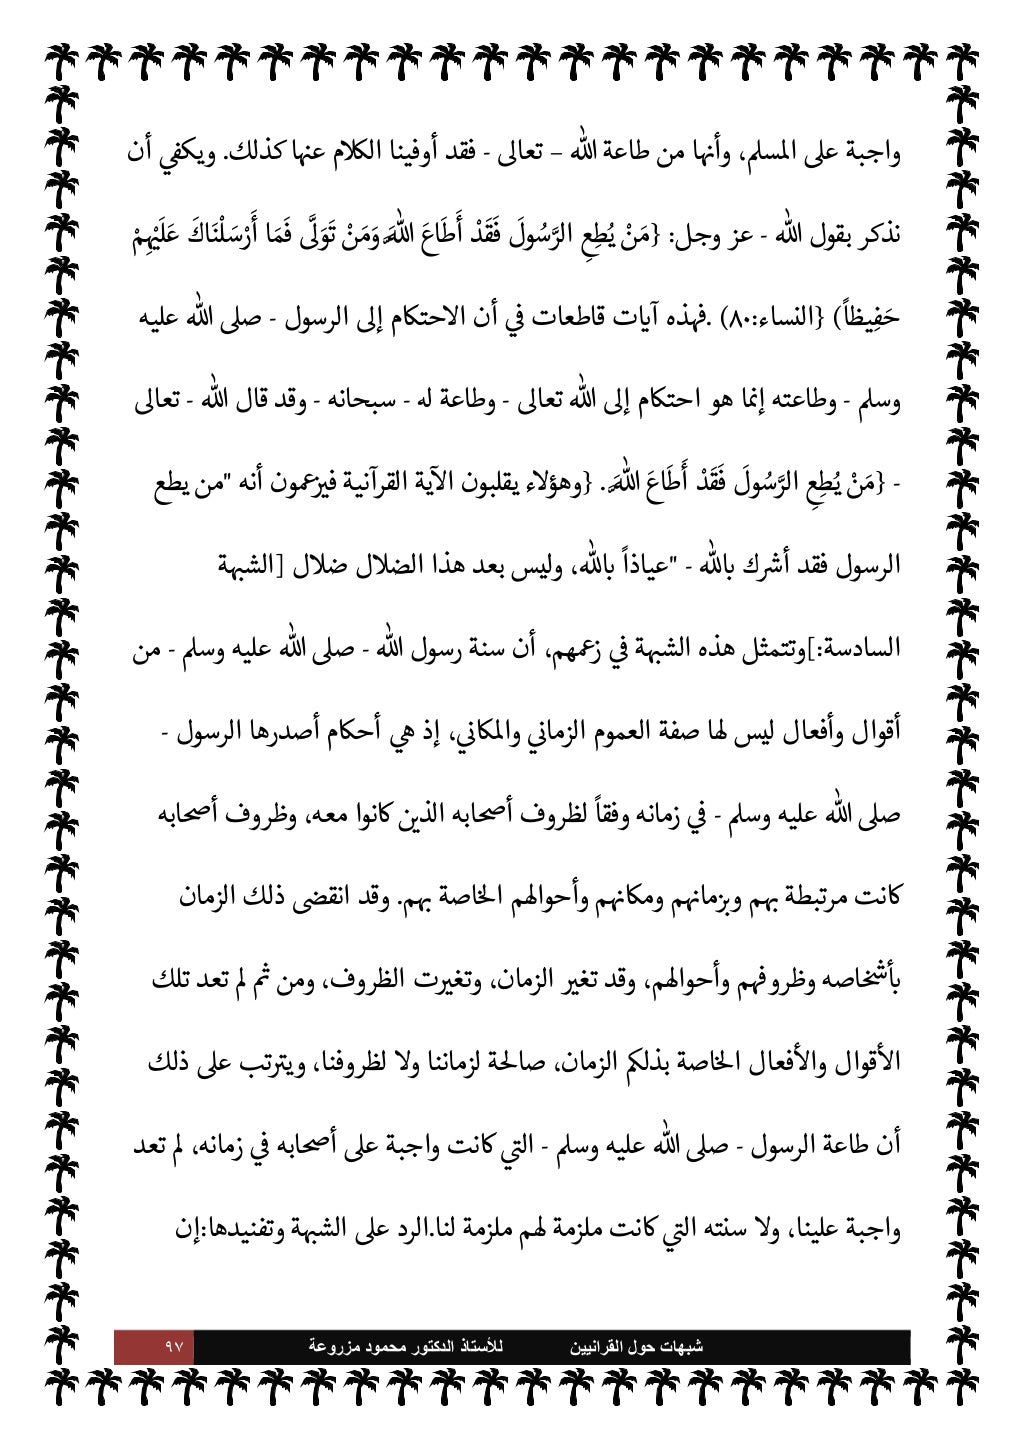 واجبة على المسلم، وأنها من طاعة الله – تعالى - فقد أوفينا الكلام عنها كذلك. ويكفي أن
نذكر بقول الله - عز وجل: {مَنْ يُطِعِ الرَّسُولَ فَقَدْ أَطَاعَ اللَّهَ وَمَنْ تَوَلَّى فَمَا أَرْسَلْنَاكَ عَلَيْهِمْ
حَفِيظاً) {النساء:٨٠) .فهذه آيات قاطعات في أن الاحتكام إلى الرسول - صلى الله عليه
وسلم - وطاعته إنما هو احتكام إلى الله تعالى - وطاعة له - سبحانه - وقد قال الله - تعالى
- {مَنْ يُطِعِ الرَّسُولَ فَقَدْ أَطَاعَ اللَّهَ. {وهؤلاء يقلبون الآية القرآنية فيزعمون أنه "من يطع
الرسول فقد أشرك بالله - "عياذاً بالله، وليس بعد هذا الضلال ضلال [الشبهة
السادسة:]وتتمثل هذه الشبهة في زعمهم، أن سنة رسول الله - صلى الله عليه وسلم - من
أقوال وأفعال ليس لها صفة العموم الزماني والمكاني، إذ هي أحكام أصدرها الرسول -
صلى الله عليه وسلم - في زمانه وفقاً لظروف أصحابه الذين كانوا معه، وظروف أصحابه
كانت مرتبطة بهم وبزمانهم ومكانهم وأحوالهم الخاصة بهم. وقد انقضى ذلك الزمان
بأشخاصه وظروفهم وأحوالهم، وقد تغير الزمان، وتغيرت الظروف، ومن ثم لم تعد تلك
الأقوال والأفعال الخاصة بذلكم الزمان، صالحة لزماننا ولا لظروفنا، ويترتب على ذلك
أن طاعة الرسول - صلى الله عليه وسلم - التي كانت واجبة على أصحابه في زمانه، لم تعد
واجبة علينا، ولا سنته التي كانت ملزمة لهم ملزمة لنا.الرد على الشبهة وتفنيدها:إن
شبهات حول القرانيين للأستاذ الدكتور محمود مزروعة ٩٧